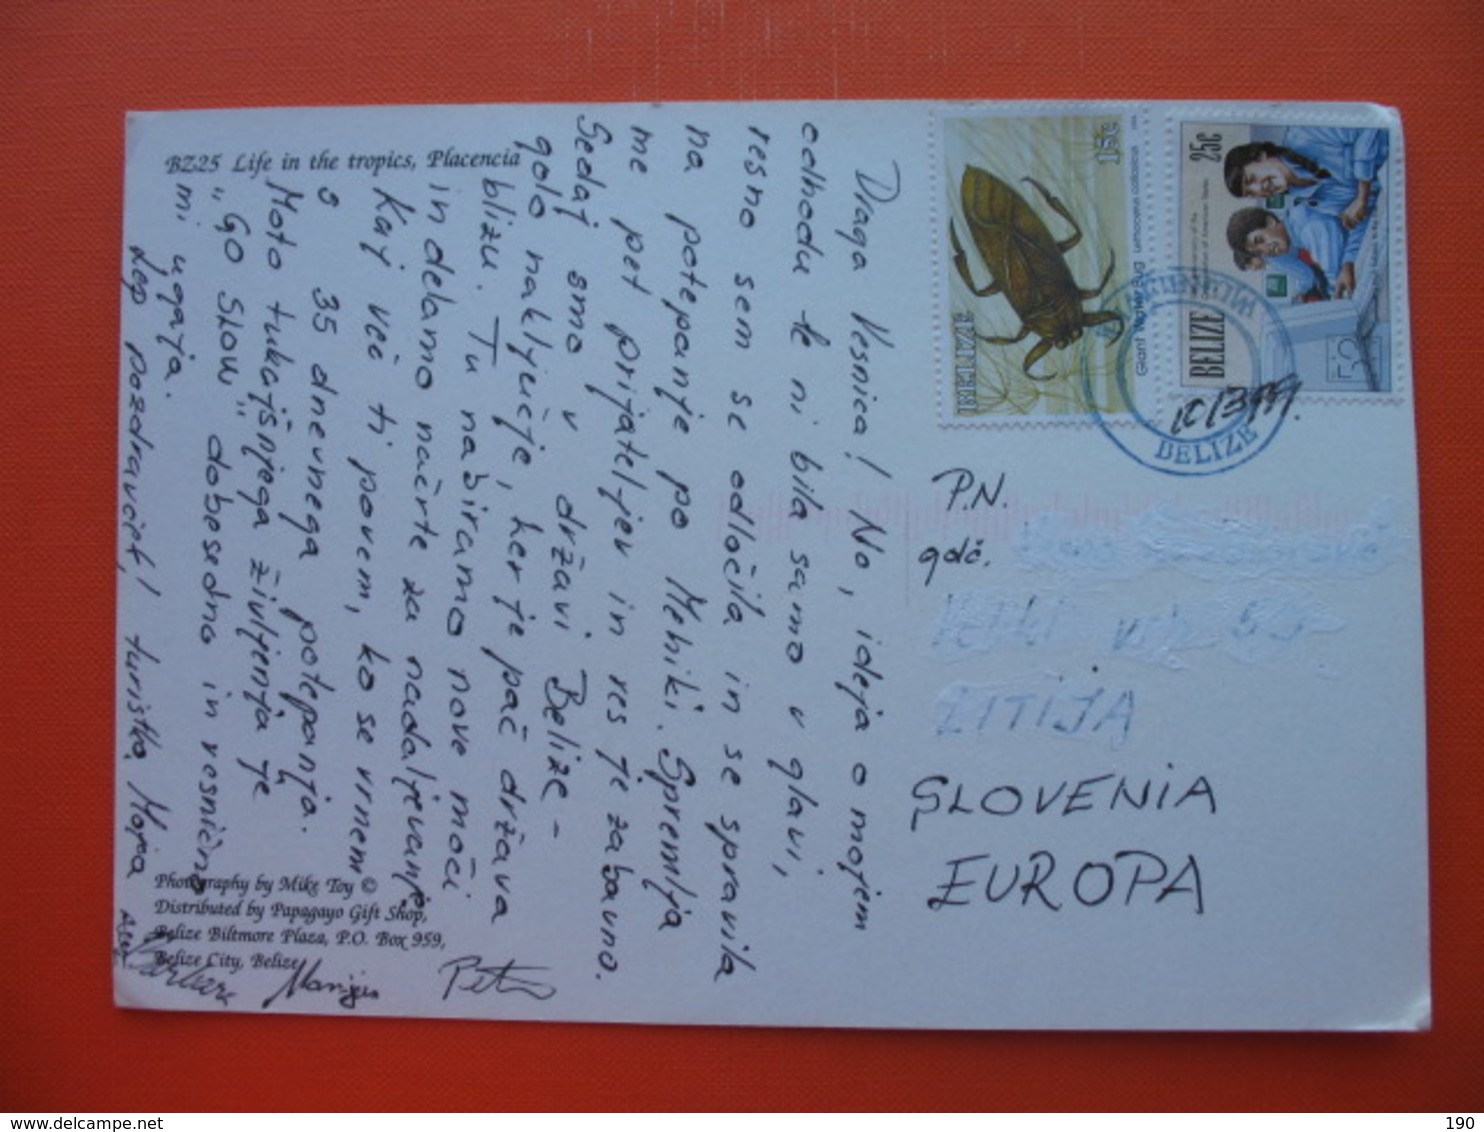 BZ25 Life in the tropics, Placencia
Draga Vesnica! No, ideja o mojem
odhodu le ni bila samo v glavi,
resno sem se odločila in se spravila
na potepanje po Mehiki. Spremlja
me pet prijateljev in res je zabavno.
Sedaj smo v državi Belize -
golo naključje, ker je pač država
blizu. Tu nabiramo nove moči
in delamo načrte za nadaljevanje
Kaj več ti povem, ko se vrnem
s 35 dnevnega potepanja.
Moto tukajšnjega življenja je
"GO SLOW" dobesedno in resnično
mi ugaja.
Lep pozdravček! turistka Mojca
Barbara
Marijan
Peter
Photography by Mike Toy ©
Distributed by Papagayo Gift Shop,
Belize Biltmore Plaza, P.O. Box 959,
Belize City, Belize
BELIZE
15c
Giant Water Bug Lethocerus collosicus
25c
BELIZE
BELIZE
P.N.
gdč.
SLOVENIA
EUROPA
190
delcampe.net